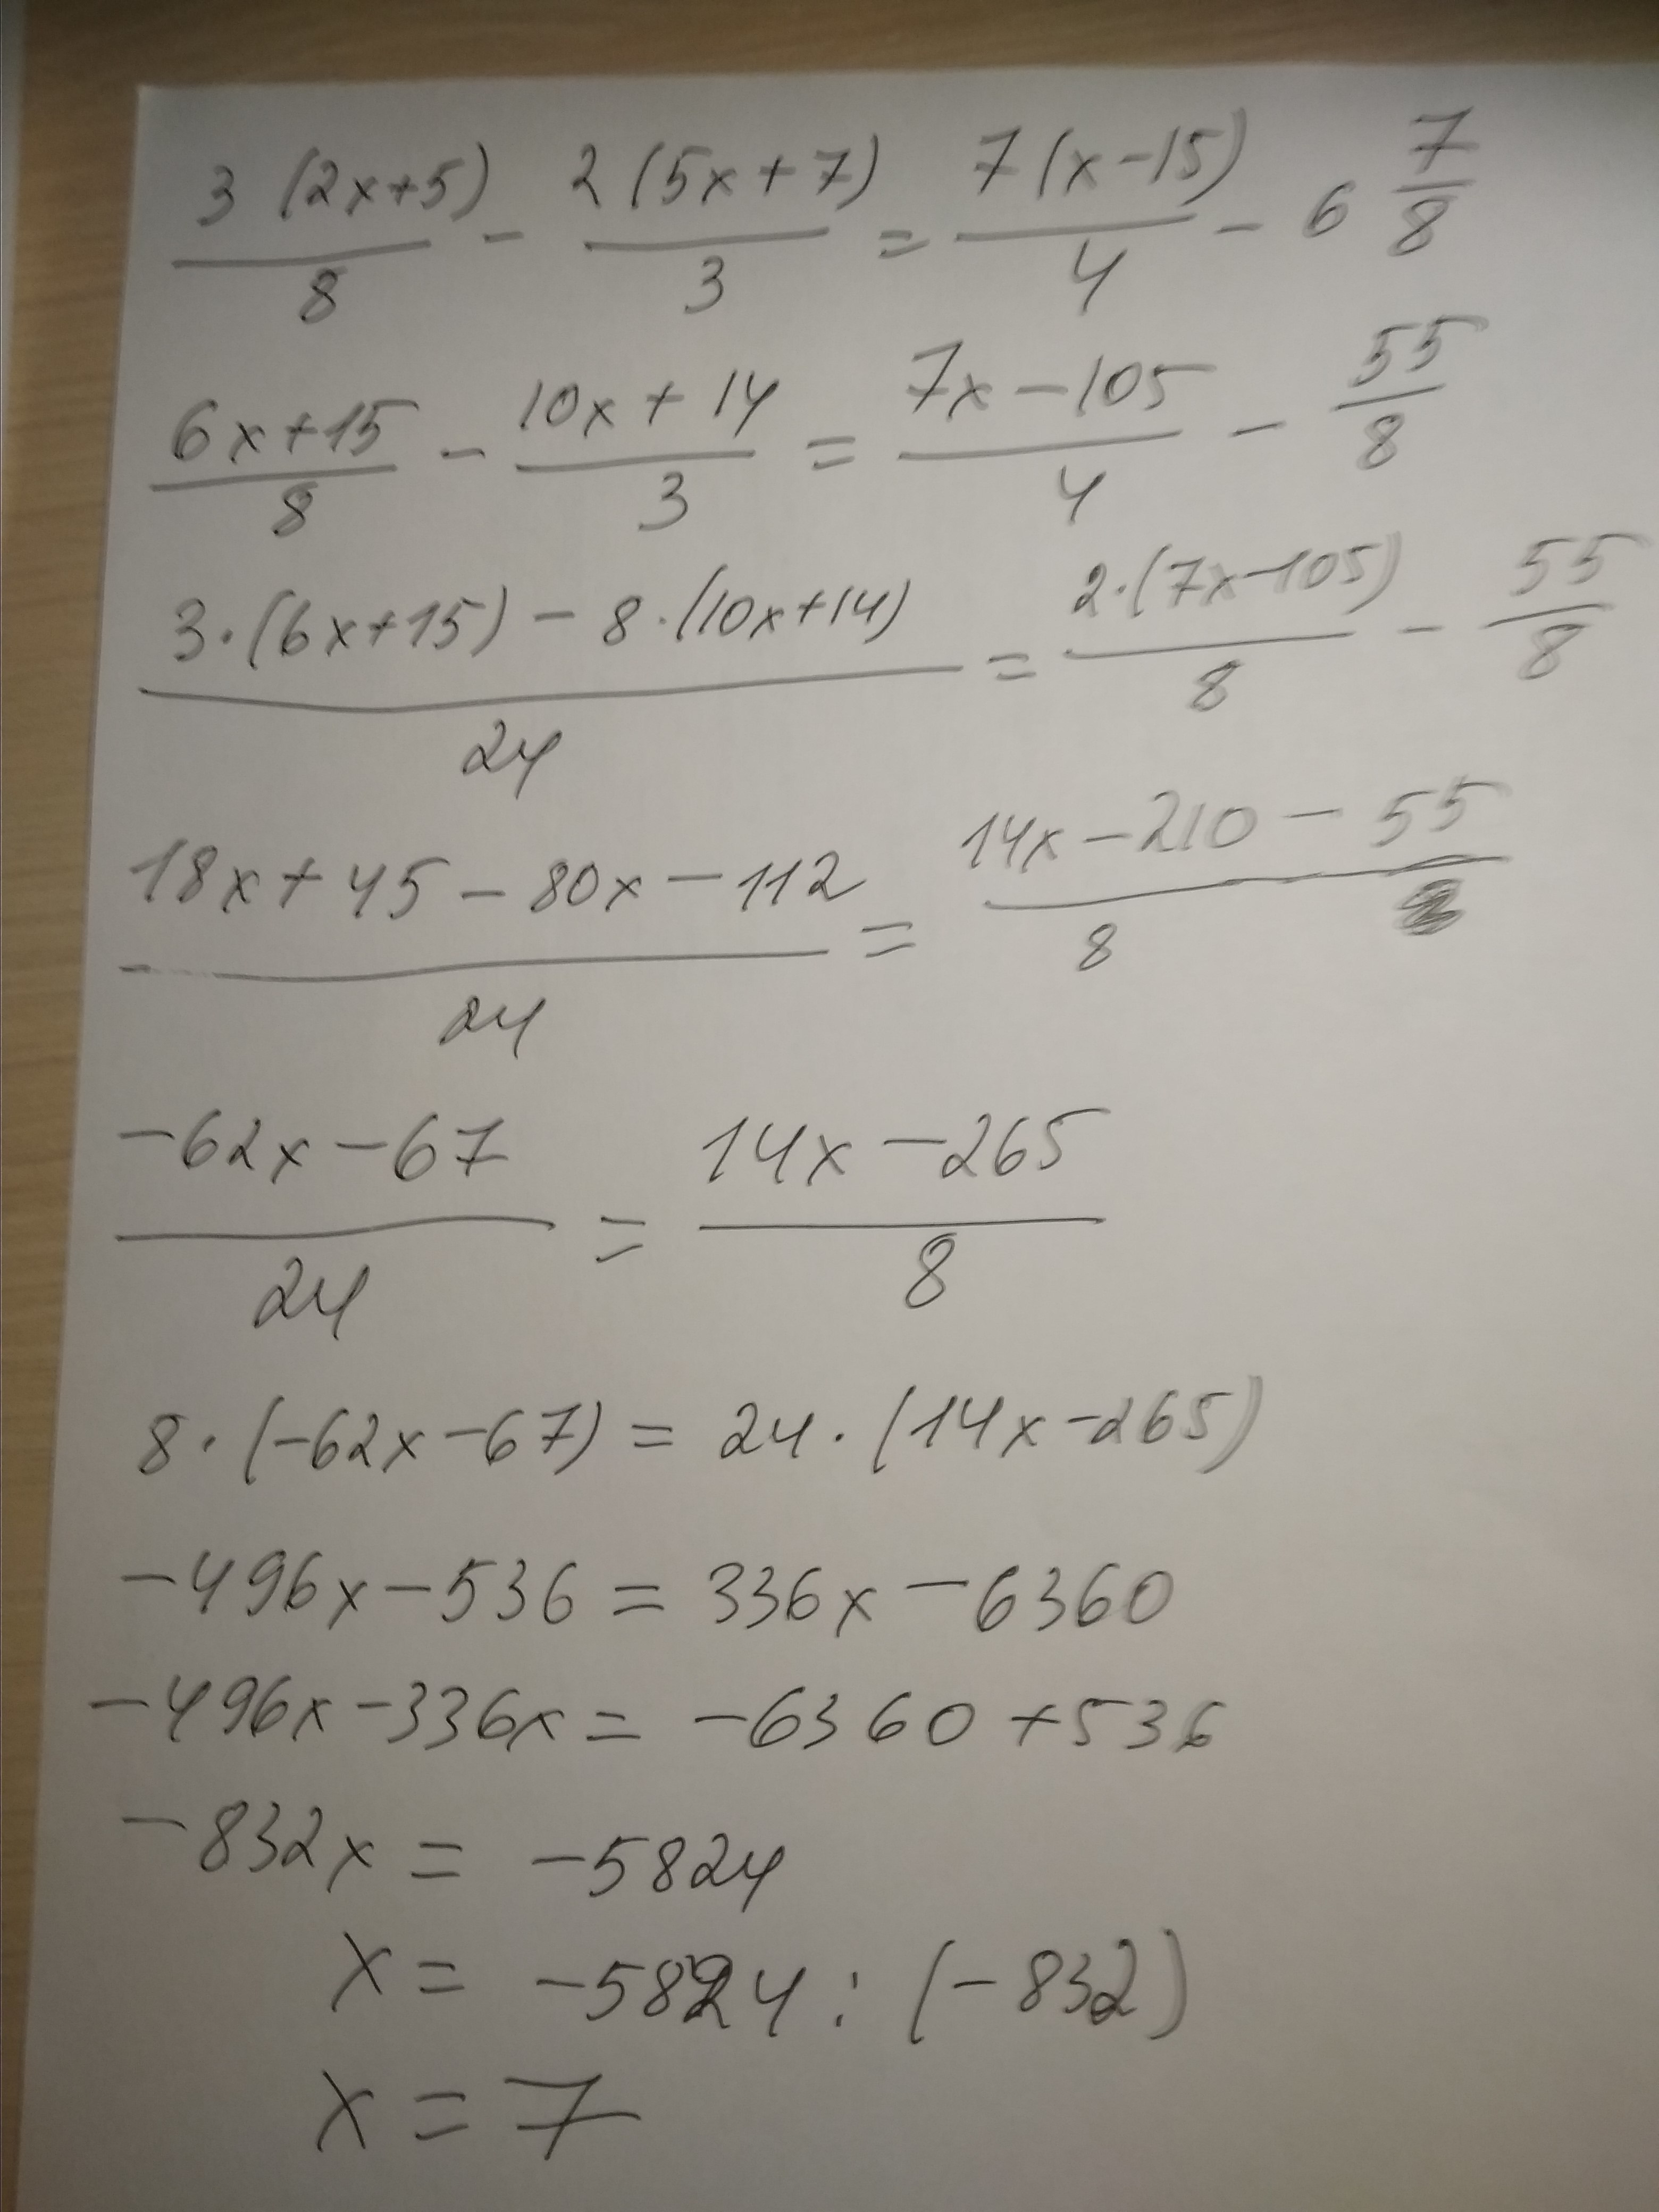 3(2x+5)/8 - 2(5x+7)/3 = 7(x-15)/4 - 6 7/8
6x+15/8 - 10x+14/3 = 7x-105/4 - 55/8
3·(6x+15)-8·(10x+14)/24 = 2·(7x-105)/8 - 55/8
18x+45-80x-112/24 = 14x-210-55/8
-62x-67/24 = 14x-265/8
8·(-62x-67) = 24·(14x-265)
-496x-536 = 336x-6360
-496x-336x = -6360+536
-832x = -5824
x = -5824:(-832)
x = 7